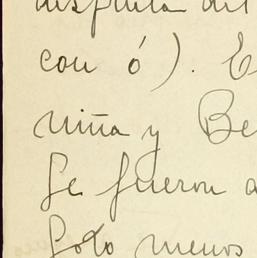 con ó). E
niña y Be
Se fueron a
Solo menos